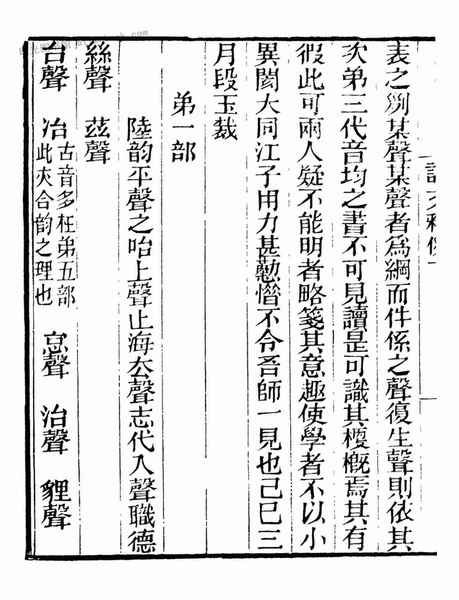 表之列某聲某聲者爲綱而件係之聲復生聲則依其
次弟三代音均之書不可見讀是可識其梗槪焉其有
彼此可兩人疑不能明者略箋其意趣使學者不以小
異閡大同江子用力甚懃惜不令吾師一見也己巳三
月段玉裁
弟一部
陸韵平聲之咍上聲止海去聲志代入聲職德
絲聲 茲聲
台聲 冶 古音多在弟五部
此夾合韵之理也
怠聲 治聲 貍聲